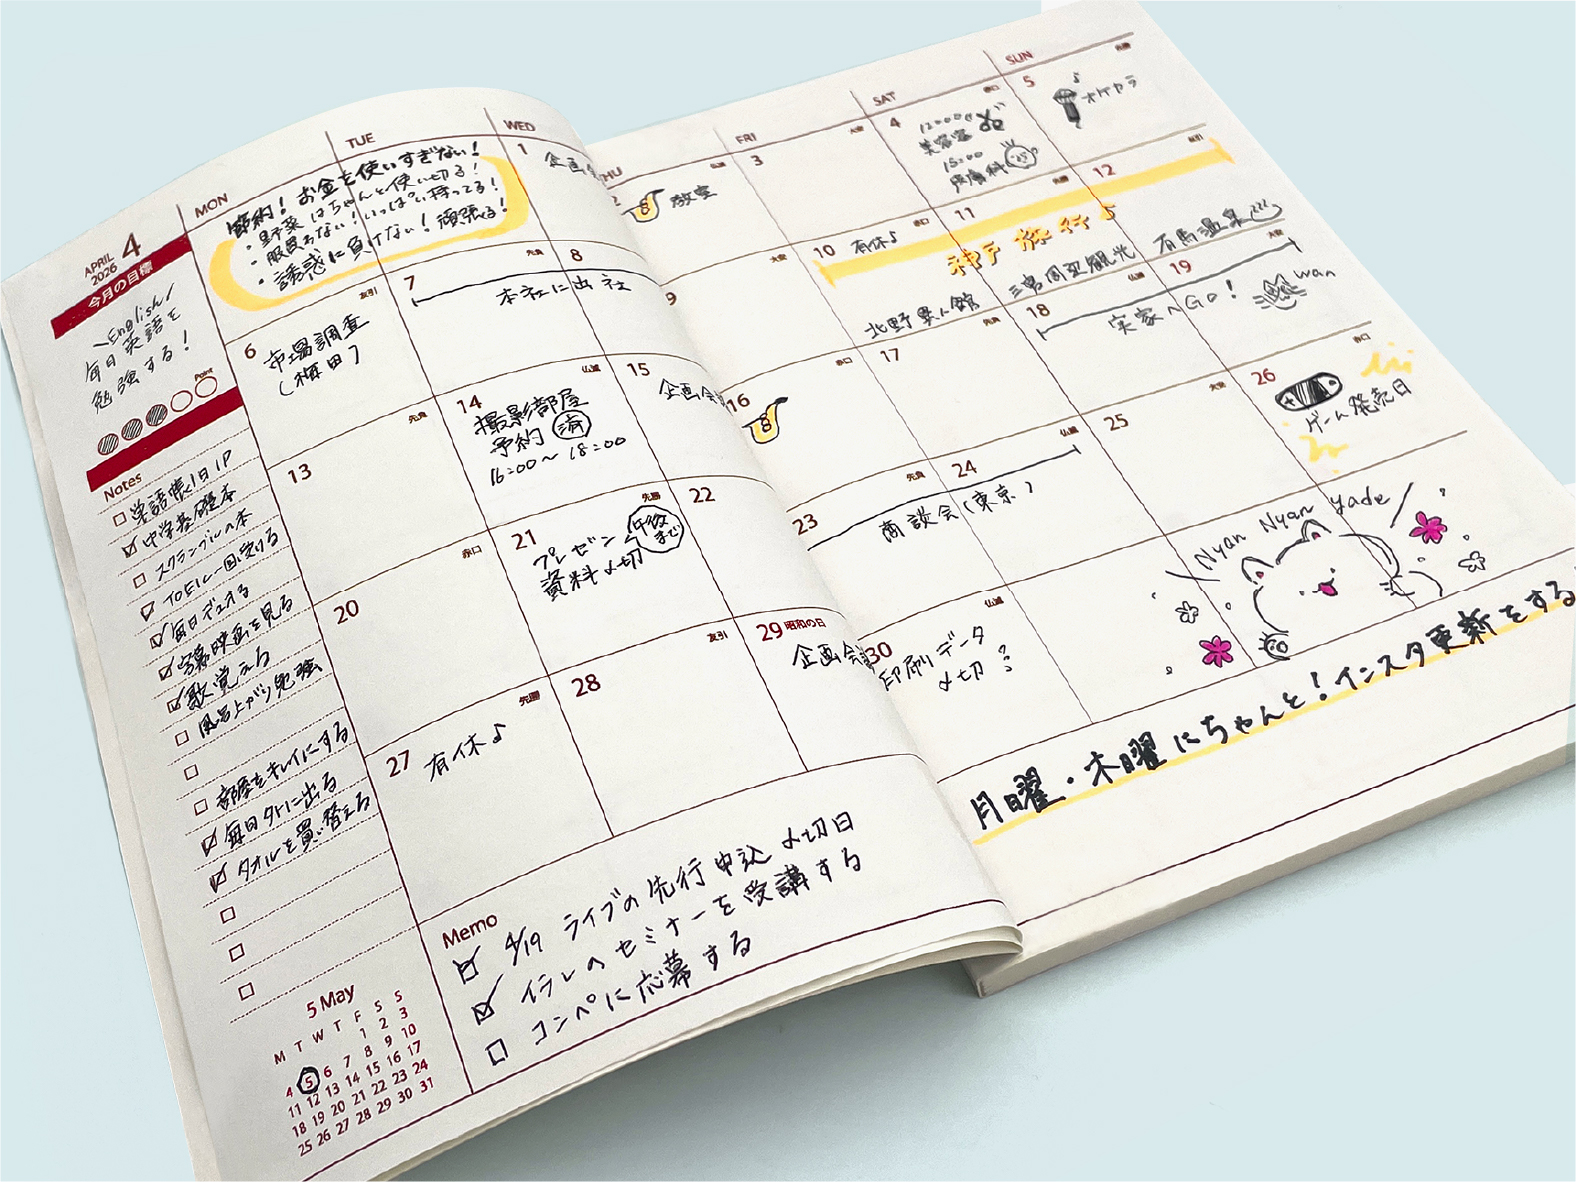 APRIL 4
2026
今月の目標
English
毎日英語を
勉強する！
Point
Notes
単語帳1日1P
中学基礎本
スクランブルの本
TOEIC一回受ける
毎日デュオる
字幕映画を見る
歌覚える
風呂上がり勉強
部屋をキレイにする
毎日外に出る
タオルを買い替える
5 May
M T W T F S S
1 2 3
4 5 6 7 8 9 10
11 12 13 14 15 16 17
18 19 20 21 22 23 24
25 26 27 28 29 30 31
MON
TUE
WED
THU
FRI
SAT
SUN
節約！お金を使いすぎない！
・野菜はちゃんと使い切る！
・服買わない！いっぱい持ってる！
・誘惑に負けない！頑張る！
1
企画会
2 仏滅
教室
3 大安
4 赤口
12:00
美容室
15:00
皮膚科
5 先勝
♪
オケカラ
6 友引
市場調査
(梅田)
7 先負
本社に出社
8
9 大安
10 赤口
有休♪
北野異人館
11 先勝
神戸旅行♪
三宮周辺観光
12 友引
有馬温泉
13 先負
14 仏滅
撮影部屋
予約 済
16:00～18:00
15
企画会
16 赤口
17 先負
18 仏滅
実家へGo！
19 大安
wan
20 赤口
21 先勝
プレゼン
資料〆切
午後まで
22
23 先負
商談会(東京)
24 仏滅
25 大安
26 赤口
ゲーム発売日
27 先勝
有休♪
28 友引
29 昭和の日
企画会議
30 仏滅
印刷データ
〆切
Nyan Nyan yade
月曜・木曜にちゃんと！インスタ更新をする
Memo
4/19 ライブの先行申込〆切日
イラレのセミナーを受講する
コンペに応募する